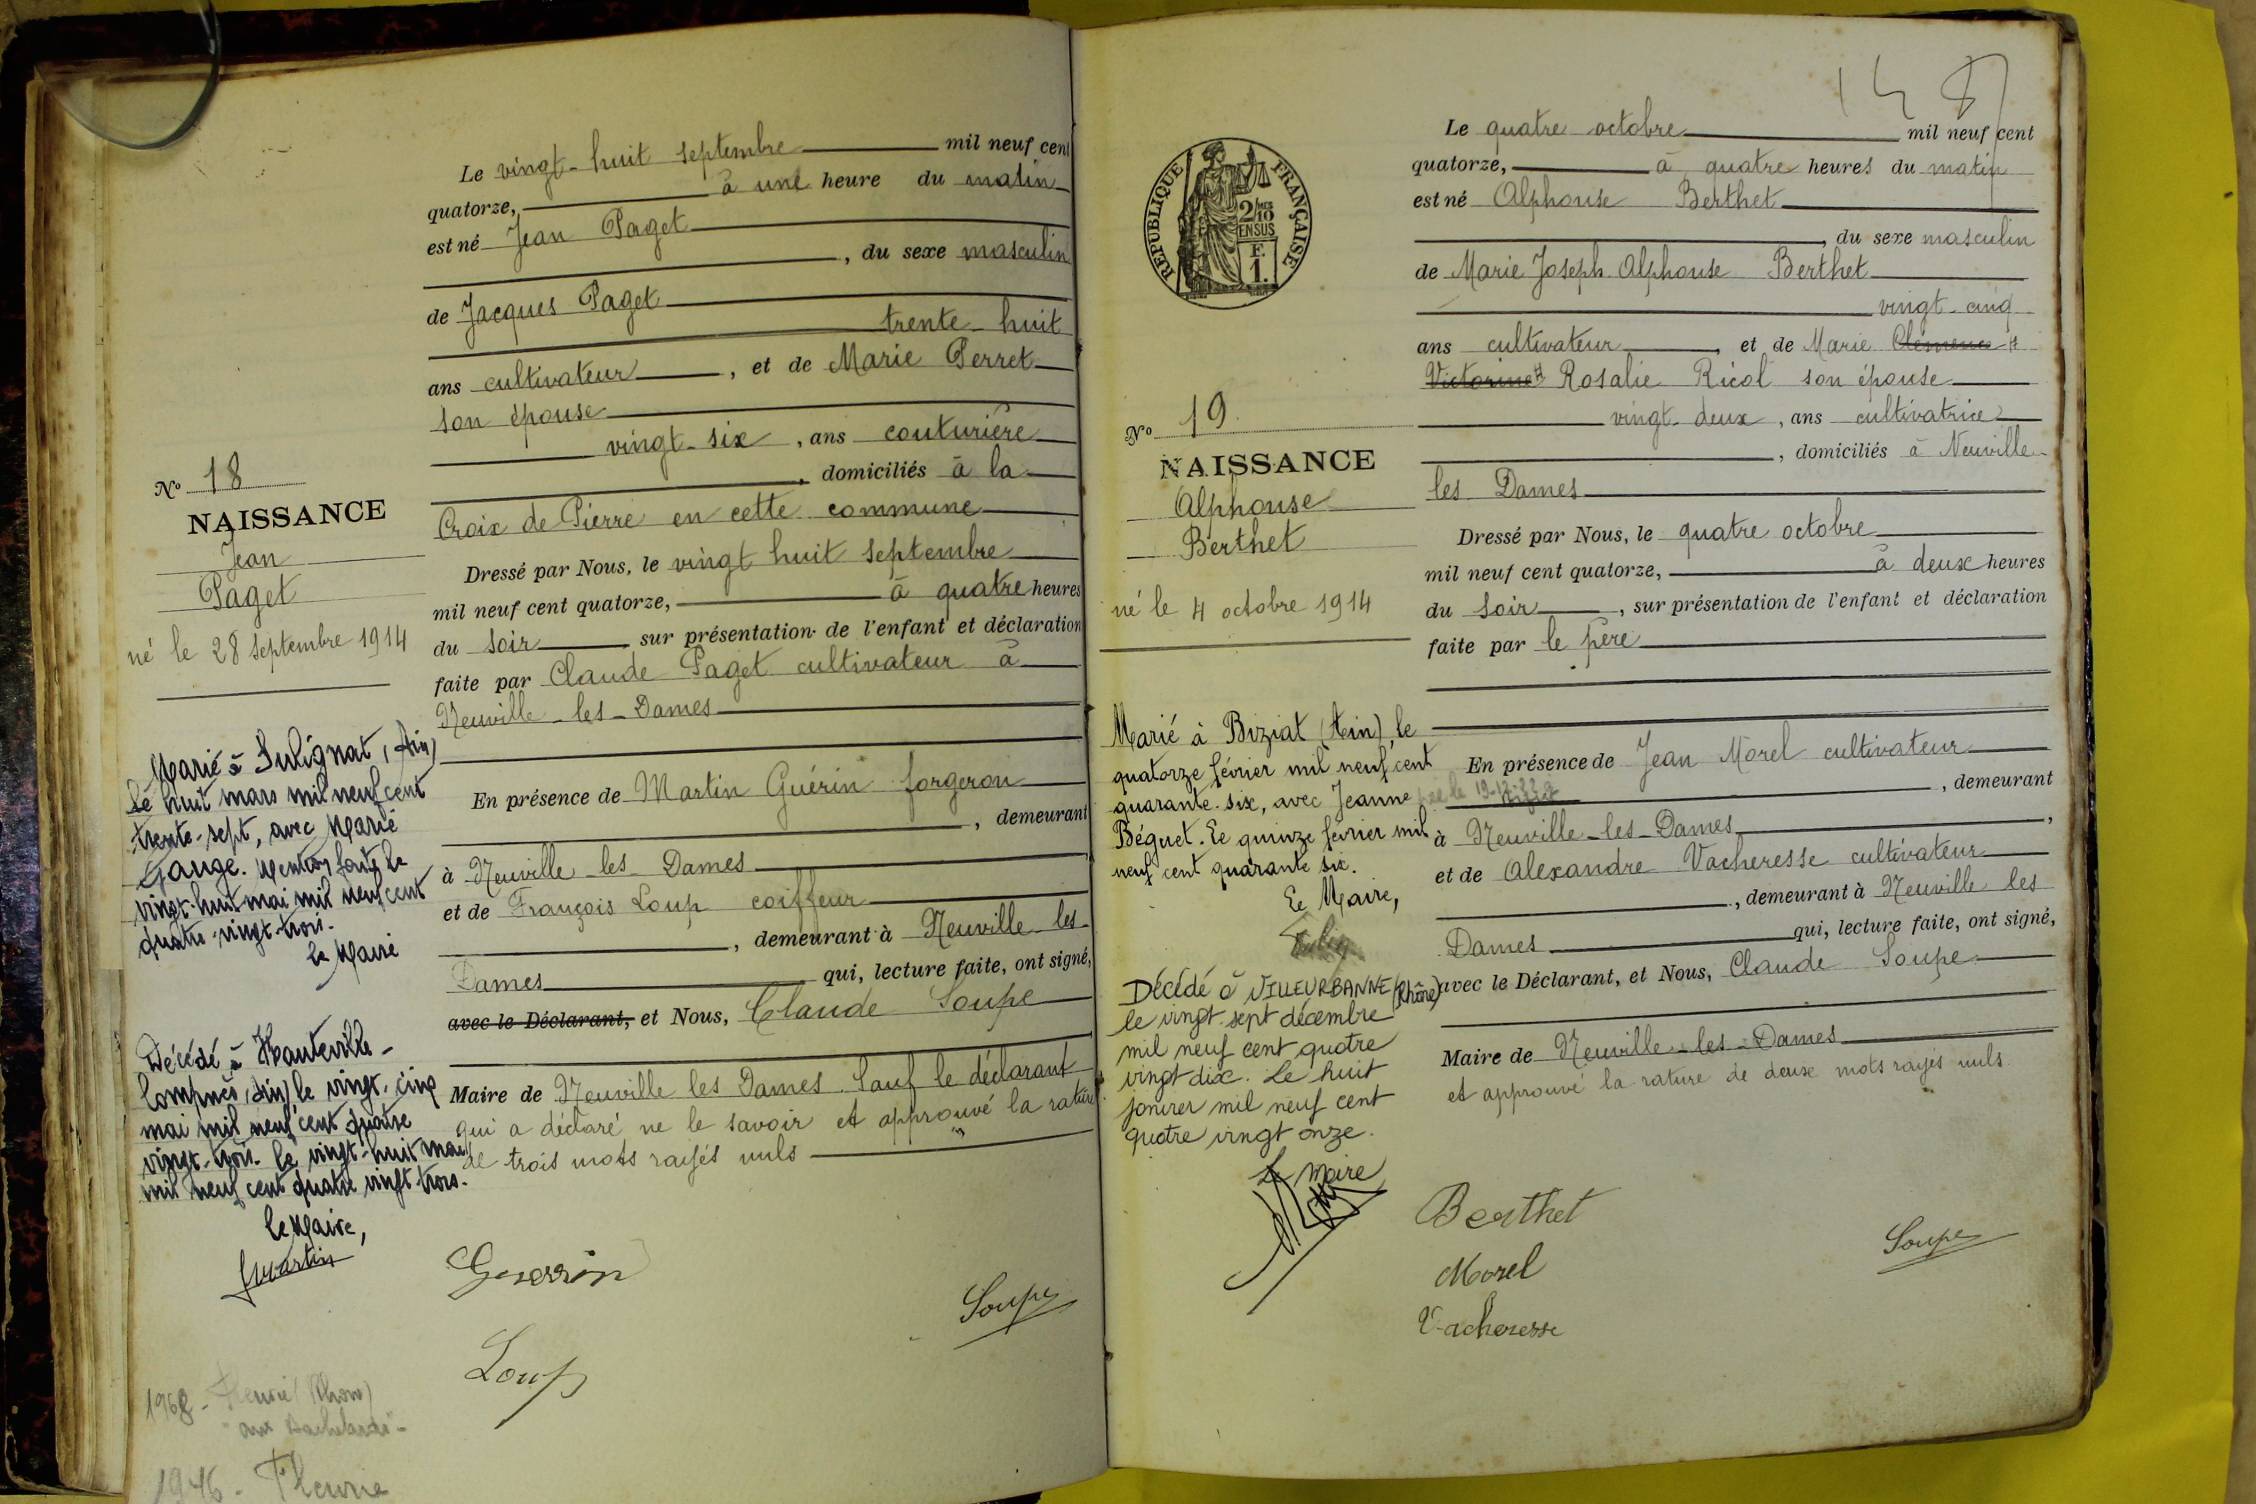 Le vingt-huit septembre mil neuf cent
quatorze, à une heure du matin
est né Jean Paget
, du sexe masculin
de Jacques Paget
trente-huit
ans cultivateur, et de Marie Perret
son épouse
vingt-six, ans couturière
, domiciliés à la
Croix de Pierre en cette commune
Dressé par Nous, le vingt huit septembre
mil neuf cent quatorze, à quatre heures
du soir sur présentation de l'enfant et déclaration
faite par Claude Paget cultivateur à
Neuville-les-Dames
En présence de Martin Guérin forgeron
, demeurant
à Neuville-les-Dames
et de François Loup coiffeur
, demeurant à Neuville-les-
Dames qui, lecture faite, ont signé,
avec le Déclarant, et Nous, Claude Soupe
Maire de Neuville les Dames sauf le déclarant
qui a déclaré ne le savoir et approuvé la rature
de trois mots rayés nuls
Guerrin
Soupe
Loup
No 18
NAISSANCE
Jean
Paget
né le 28 septembre 1914
Marié à Sulignat, (Ain)
le huit mars mil neuf cent
trente-sept, avec Marie
Gauge. Mention faite le
vingt-huit mai mil neuf cent
quatre-vingt-trois.
le Maire
Décédé à Hauteville-
Lompnès (Ain) le vingt-cinq
mai mil neuf cent quatre
vingt-trois. Le vingt-huit mai
mil neuf cent quatre vingt trois.
le Maire,
Martin
1968 - Fleurie (Rhône)
1946 - Fleurie
148
REPUBLIQUE FRANÇAISE
2/10
EN SUS
F.
1.
Le quatre octobre mil neuf cent
quatorze, à quatre heures du matin
est né Alphonse Berthet
, du sexe masculin
de Marie Joseph Alphonse Berthet
vingt-cinq
ans cultivateur, et de Marie Clémence
Victorine Rosalie Ricol son épouse
vingt-deux, ans cultivatrice
, domiciliés à Neuville
les Dames
Dressé par Nous, le quatre octobre
mil neuf cent quatorze, à deux heures
du soir, sur présentation de l'enfant et déclaration
faite par le père
En présence de Jean Morel cultivateur
, demeurant
à Neuville-les-Dames,
et de Alexandre Vacheresse cultivateur
, demeurant à Neuville les
Dames qui, lecture faite, ont signé,
avec le Déclarant, et Nous, Claude Soupe
Maire de Neuville-les-Dames
et approuvé la rature de deux mots rayés nuls
Berthet
Soupe
Morel
Vacheresse
No 19.
NAISSANCE
Alphonse
Berthet
né le 4 octobre 1914
Marié à Biziat (Ain), le
quatorze février mil neuf cent
quarante-six, avec Jeanne
Béguet. Le quinze février mil
neuf cent quarante six.
Le Maire,
Décédé à VILLEURBANNE (Rhône)
le vingt-sept décembre
mil neuf cent quatre
vingt dix. Le huit
janvier mil neuf cent
quatre vingt onze.
Le maire